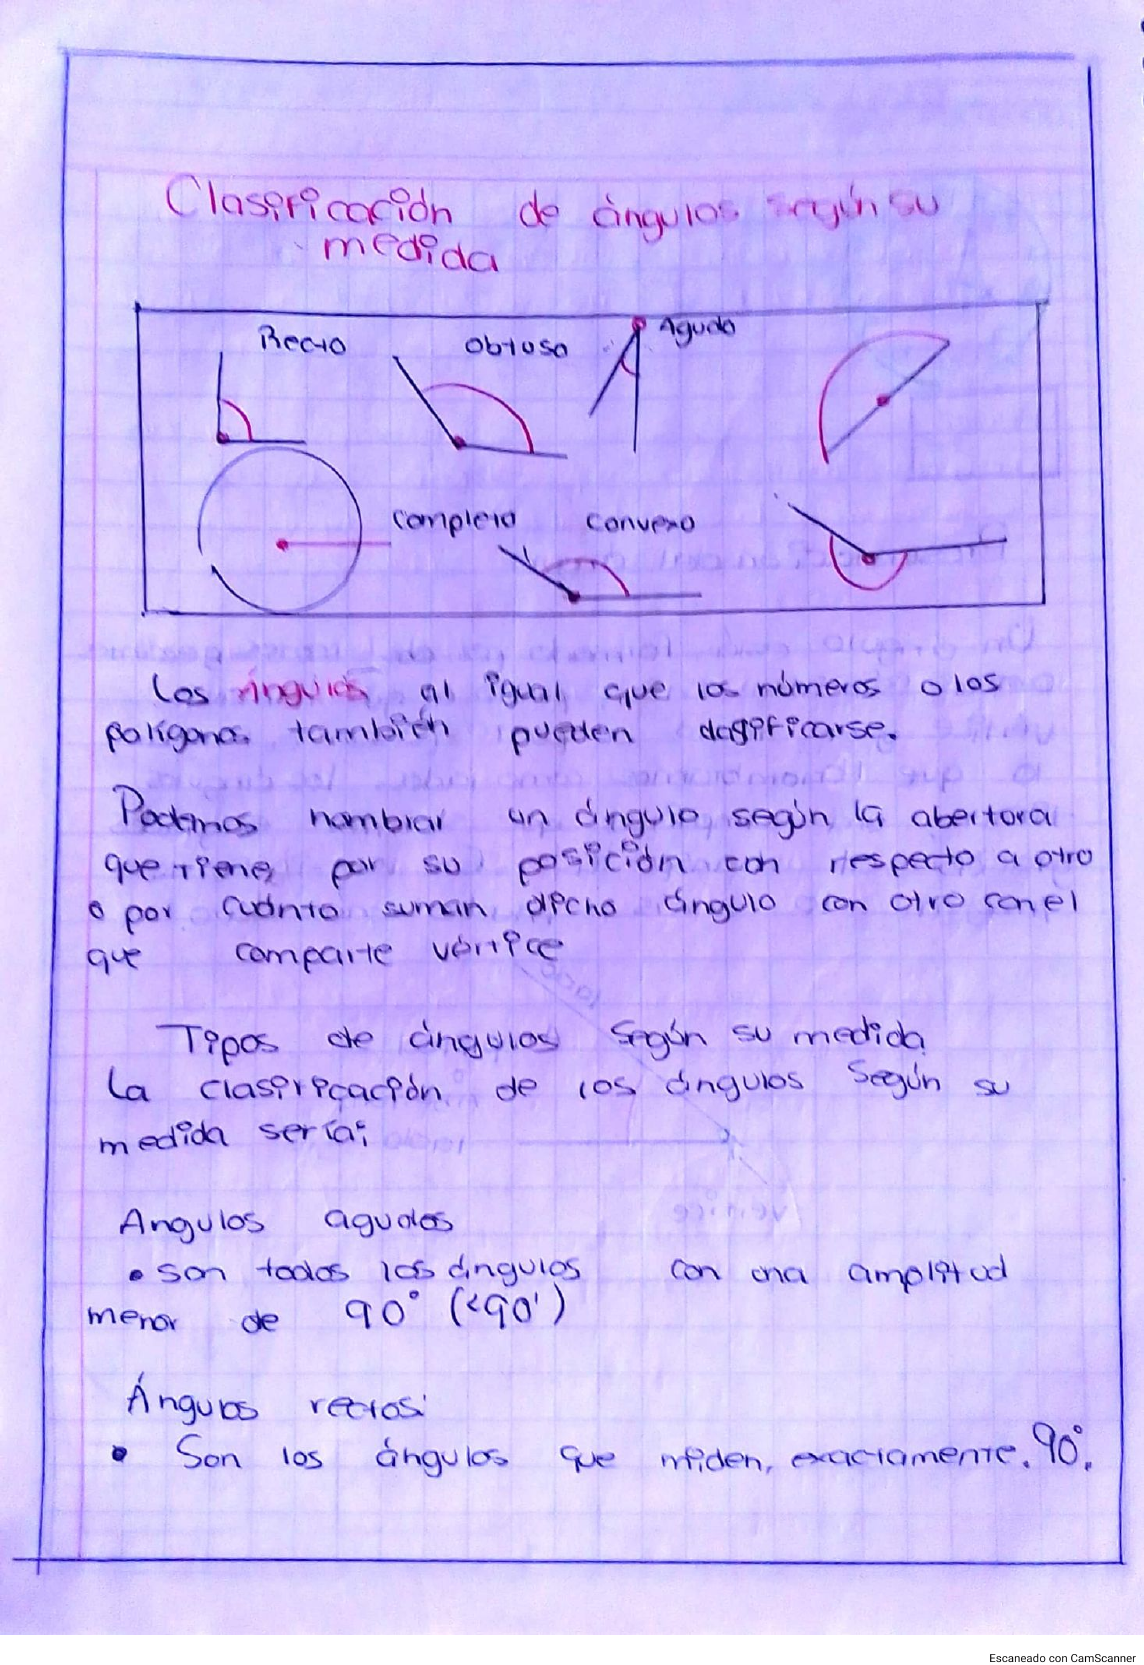 Clasificación de ángulos según su
medida
Recto
Obtuso
Agudo
Completo
Convexo
Los ángulos al igual que los números o los
polígonos también pueden clasificarse.
Podemos nombrar un ángulo según la abertora
que tiene, por su posición con respecto a otro
o por cuánto suman dicho ángulo con otro con el
que comparte vértice
Tipos de ángulos según su medida
La clasificación de los ángulos según su
medida sería;
Angulos agudos
• son todos los ángulos con una amplitud
menor de 90° (<90')
Ángulos rectos:
• Son los ángulos que miden, exactamente. 90°.
Escaneado con CamScanner